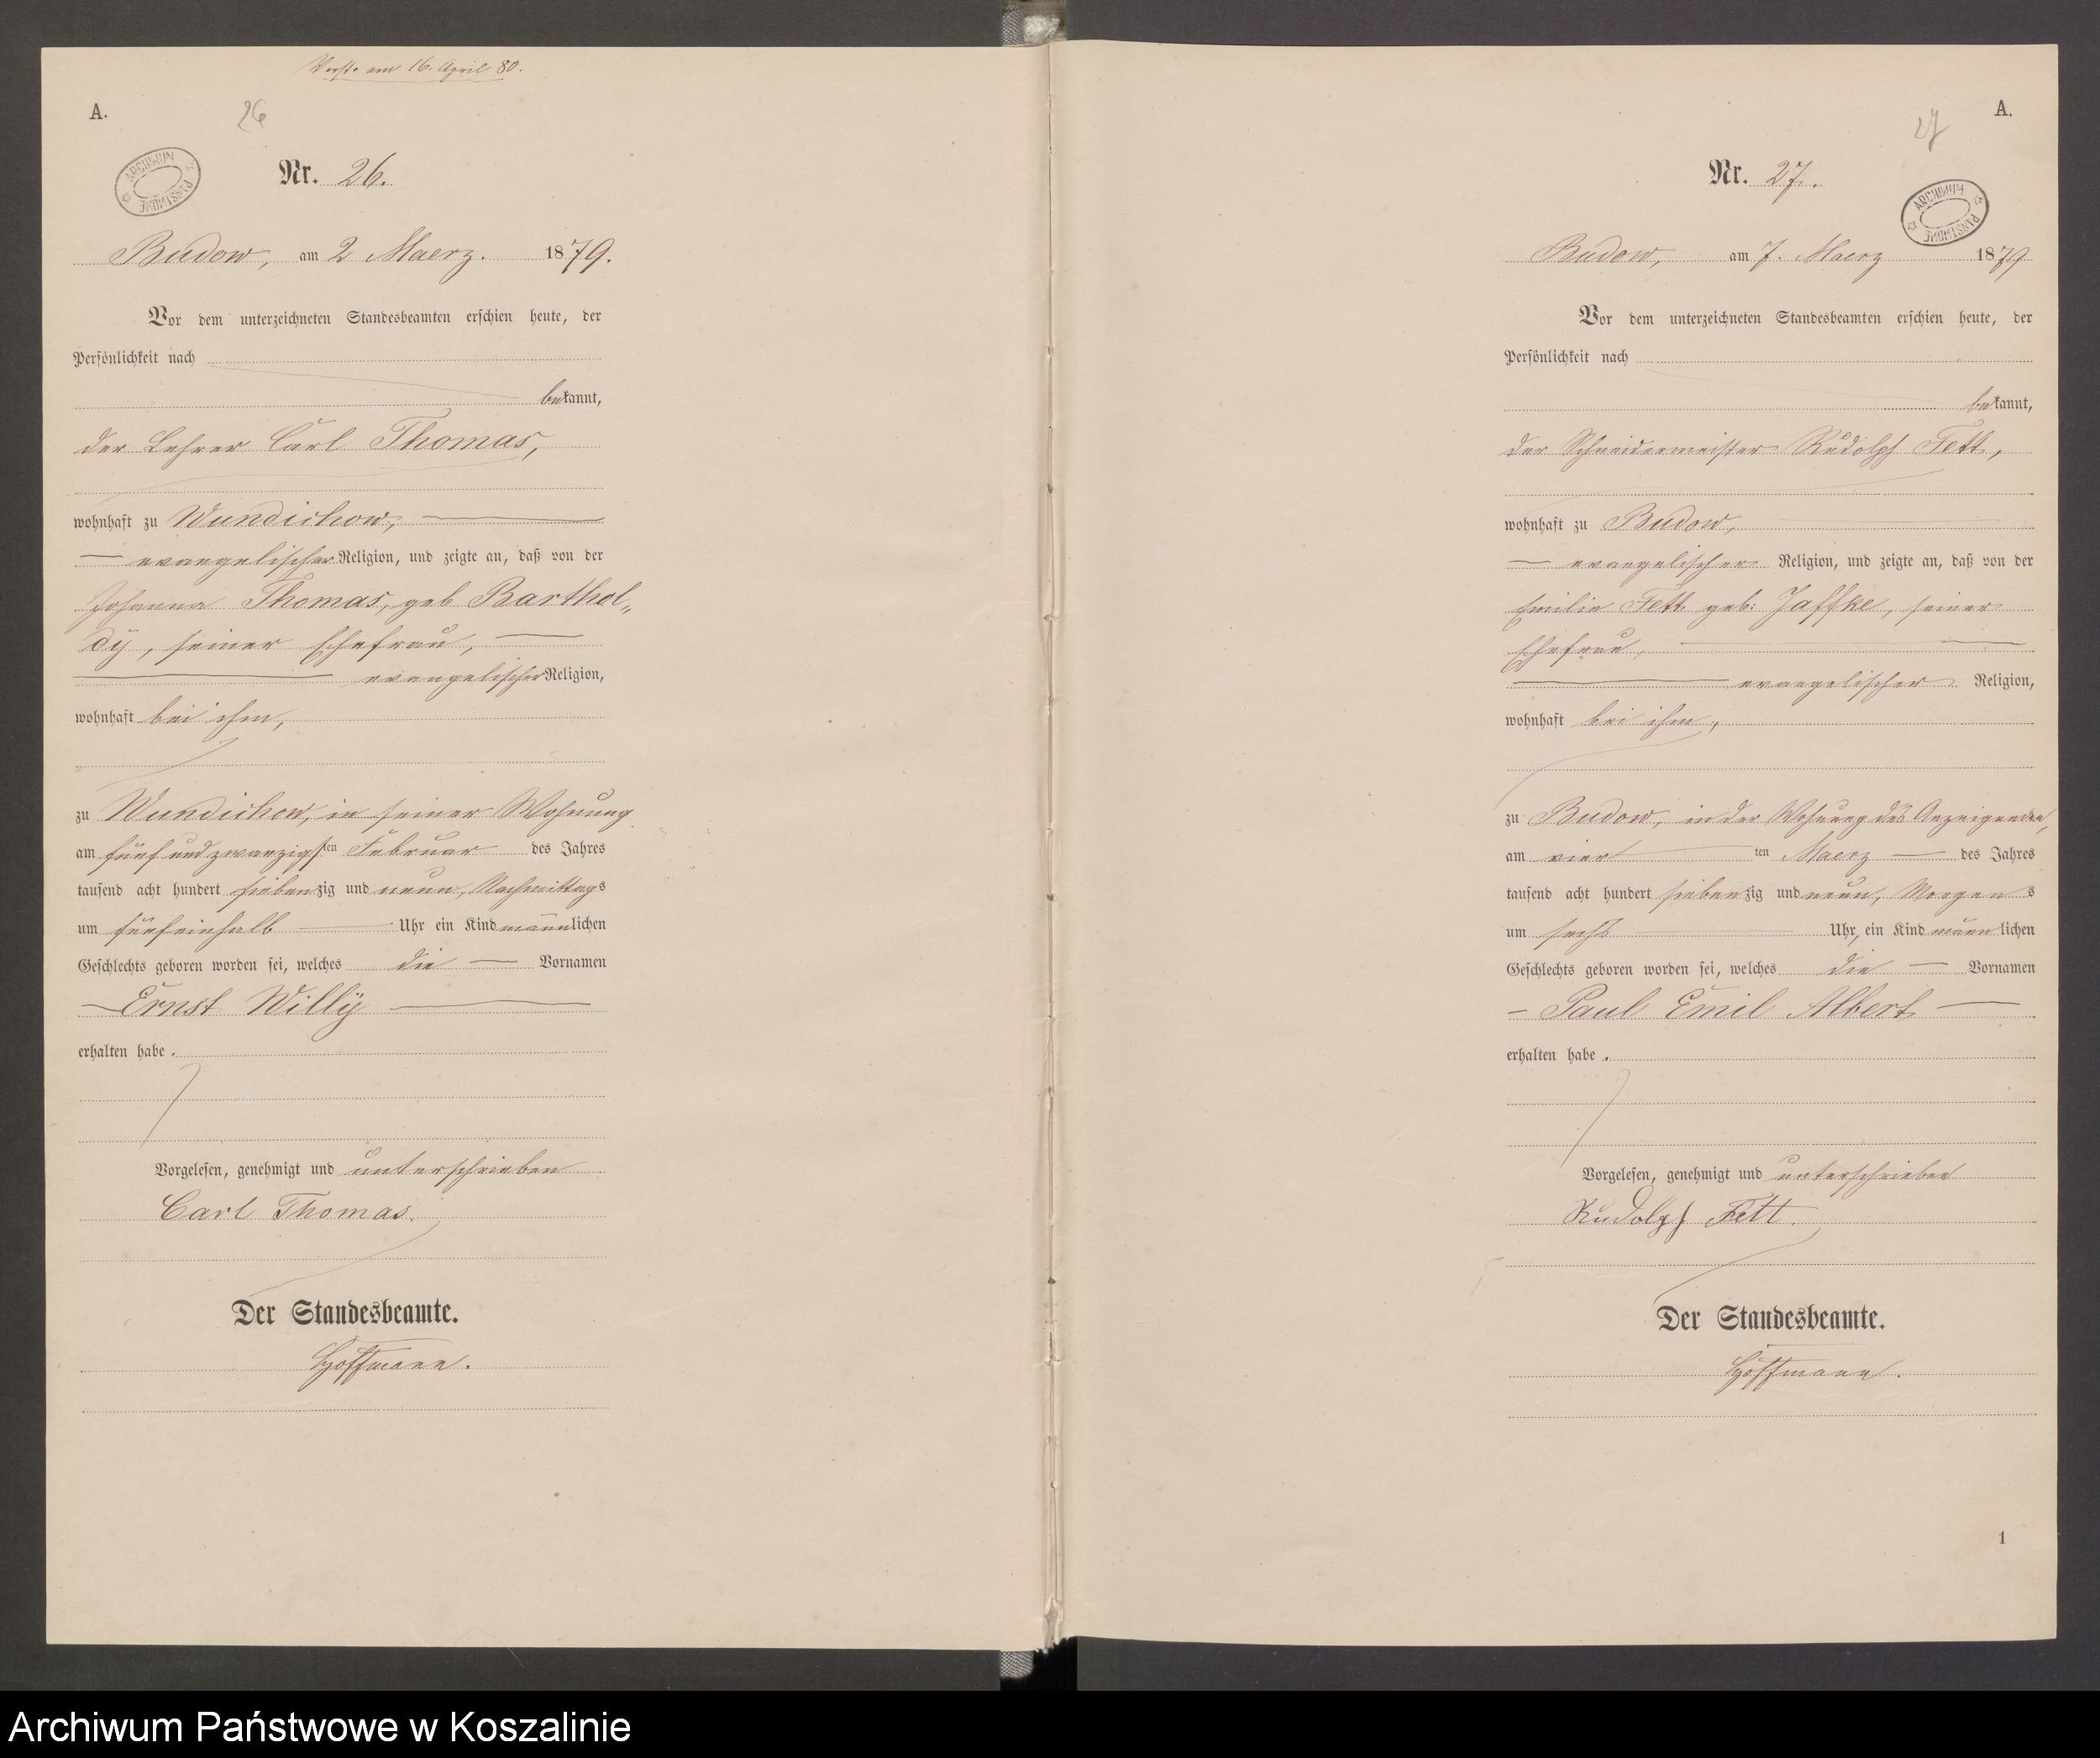 Verst. am 16. April 80.
A.
26
ARCHIWUM PAŃSTWOWE
Nr. 26.
Budow, am 2 Maerz. 1879.
Vor dem unterzeichneten Standesbeamten erschien heute, der
Persönlichkeit nach
bekannt,
der Lehrer Carl Thomas,
wohnhaft zu Wundichow,
evangelischer Religion, und zeigte an, daß von der
Johanna Thomas, geb Barthol„
dÿ, seiner Ehefrau,
evangelischer Religion,
wohnhaft bei ihm,
zu Wundichow, in seiner Wohnung
am fünf und zwanzigsten Februar des Jahres
tausend acht hundert siebenzig und neun, Nachmittags
um fünfeinhalb Uhr ein Kind männlichen
Geschlechts geboren worden sei, welches die Vornamen
Ernst Willÿ
erhalten habe.
Vorgelesen, genehmigt und unterschrieben
Carl Thomas.
Der Standesbeamte.
Hoffmann.
A.
27
Nr. 27.
ARCHIWUM PAŃSTWOWE
Budow, am 7. Maerz 1879
Vor dem unterzeichneten Standesbeamten erschien heute, der
Persönlichkeit nach
bekannt,
der Schneidermeister Rudolph Fett,
wohnhaft zu Budow,
evangelischer Religion, und zeigte an, daß von der
Emilie Fett geb: Jaffke, seiner
Ehefrau,
evangelischer Religion,
wohnhaft bei ihm,
zu Budow, in der Wohnung des Anzeigenden,
am vier ten Maerz des Jahres
tausend acht hundert siebenzig und neun, Morgens
um sechs Uhr, ein Kind männlichen
Geschlechts geboren worden sei, welches die Vornamen
Paul Emil Albert
erhalten habe.
Vorgelesen, genehmigt und unterschrieben
Rudolph Fett.
Der Standesbeamte.
Hoffmann.
1
Archiwum Państwowe w Koszalinie